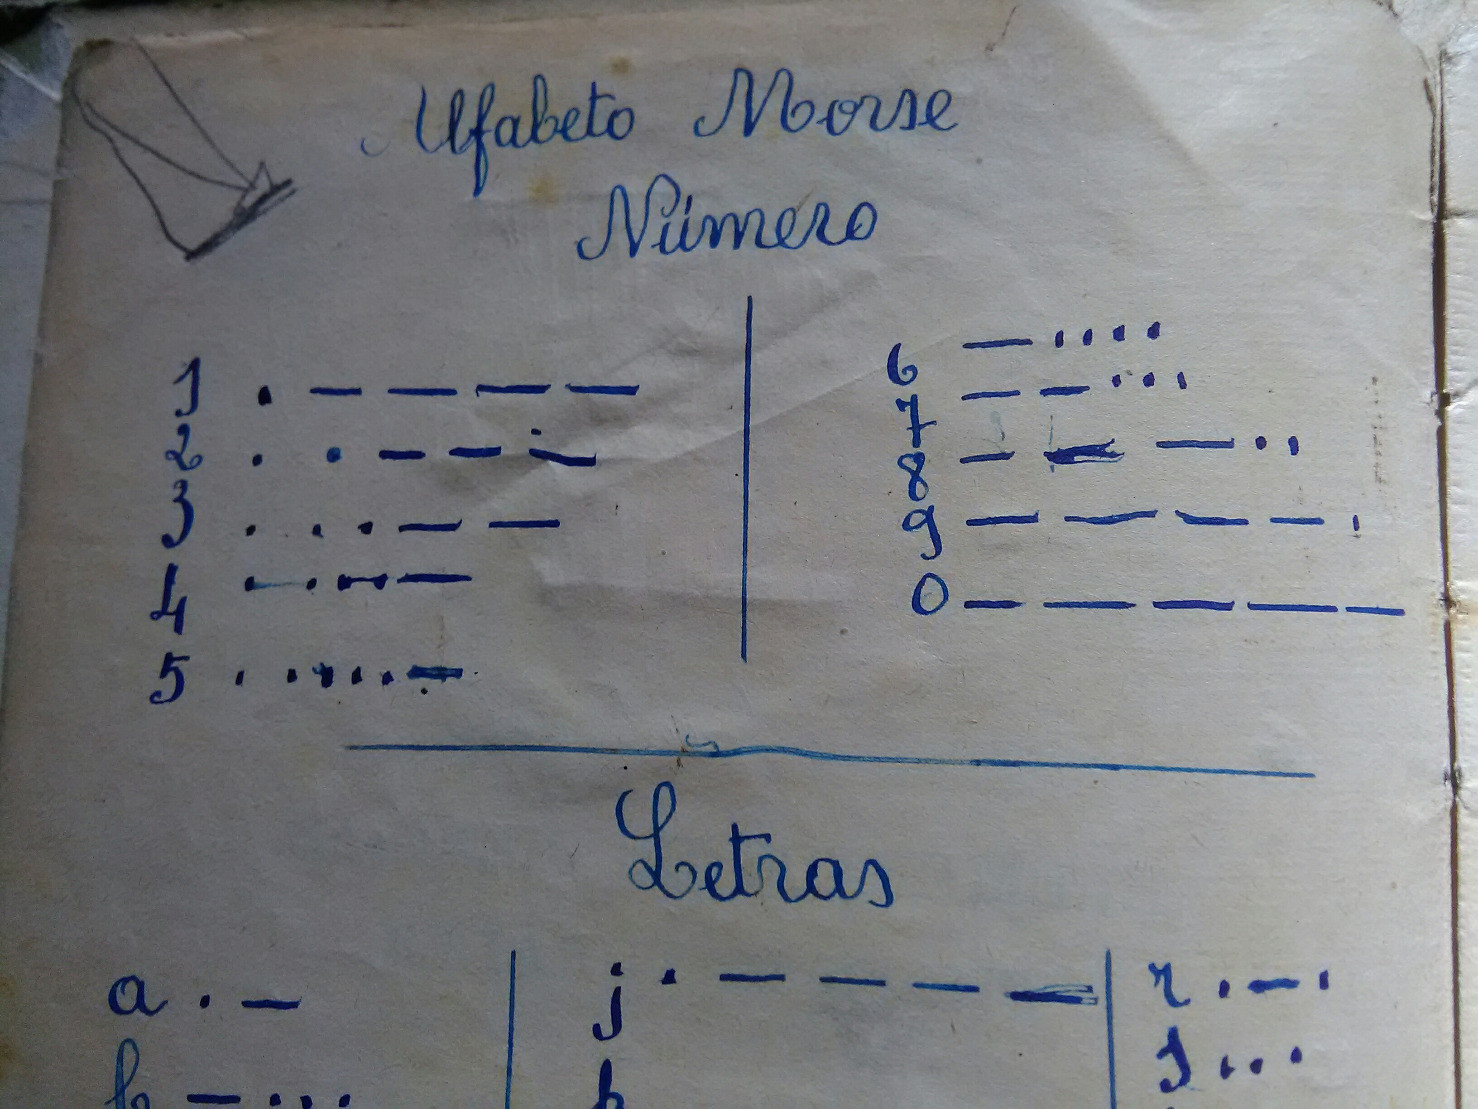 Alfabeto Morse
Número
1 . — — — —
2 . . — — —
3 . . . — —
4 . . . . —
5 . . . . . —
6 — . . . .
7 — — . . .
8 — — — . .
9 — — — — .
0 — — — — —
Letras
a . —
b — . . .
j . — — — —
k
r . — .
s . . .